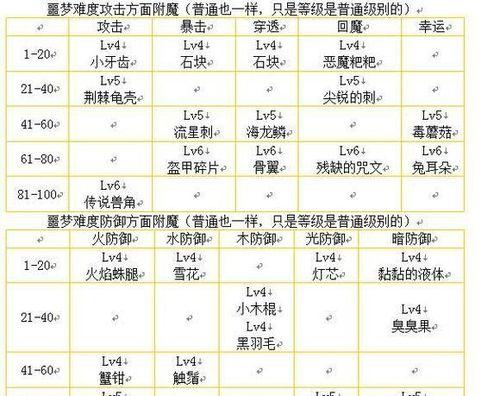 噩梦难度攻击方面附魔（普通也一样，只是等级是普通级别的）
攻击 暴击 穿透 回魔 幸运
1-20 Lv4 小牙齿 Lv4 石块 Lv4 石块 Lv4 恶魔粑粑
21-40 Lv5 荆棘龟壳 Lv5 尖锐的刺
41-60 Lv5 流星刺 Lv5 海龙鳞 Lv5 毒蘑菇
61-80 Lv6 盔甲碎片 Lv6 骨翼 Lv6 残缺的咒文 Lv6 兔耳朵
81-100 Lv6 传说兽角
噩梦难度防御方面附魔（普通也一样，只是等级是普通级别的）
火防御 水防御 木防御 光防御 暗防御
1-20 Lv4 火焰蛛腿 Lv4 雪花 Lv4 灯芯 Lv4 黏黏的液体
21-40 Lv4 小木棍 Lv4 黑羽毛 Lv4 臭臭果
41-60 Lv4 蟹钳 Lv4 触鬚